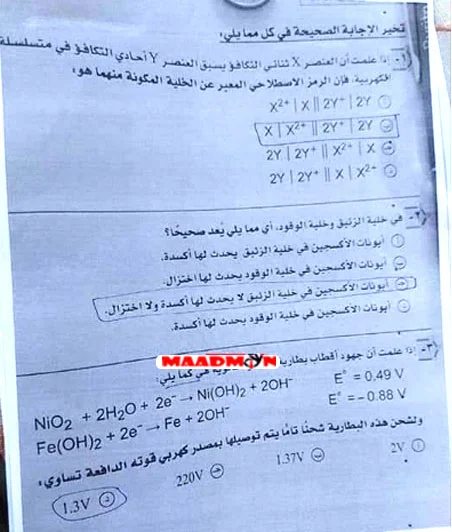 تخير الإجابة الصحيحة في كل مما يلي:
١- إذا علمت أن العنصر X ثنائي التكافؤ يسبق العنصر Y أحادي التكافؤ في متسلسلة
الكهربية، فإن الرمز الاصطلاحي المعبر عن الخلية المكونة منهما هو:
أ X²⁺ | X || 2Y⁺ | 2Y
ب X | X²⁺ || 2Y⁺ | 2Y
ج 2Y | 2Y⁺ || X²⁺ | X
د 2Y | 2Y⁺ || X | X²⁺
٢- في خلية الزئبق وخلية الوقود، أي مما يلي يُعد صحيحًا؟
أ أيونات الأكسجين في خلية الزئبق يحدث لها أكسدة.
ب أيونات الأكسجين في خلية الوقود يحدث لها اختزال.
ج أيونات الأكسجين في خلية الزئبق لا يحدث لها أكسدة ولا اختزال.
د أيونات الأكسجين في خلية الوقود يحدث لها أكسدة.
MAADMOYN
٣- إذا علمت أن جهود أقطاب بطارية هي كما يلي:
NiO₂ + 2H₂O + 2e⁻ → Ni(OH)₂ + 2OH⁻ E° = 0.49 V
Fe(OH)₂ + 2e⁻ → Fe + 2OH⁻ E° = – 0.88 V
ولشحن هذه البطارية شحنًا تامًا يتم توصيلها بمصدر كهربي قوته الدافعة تساوي:
أ 2V ب 1.37V ج 220V د 1.3V